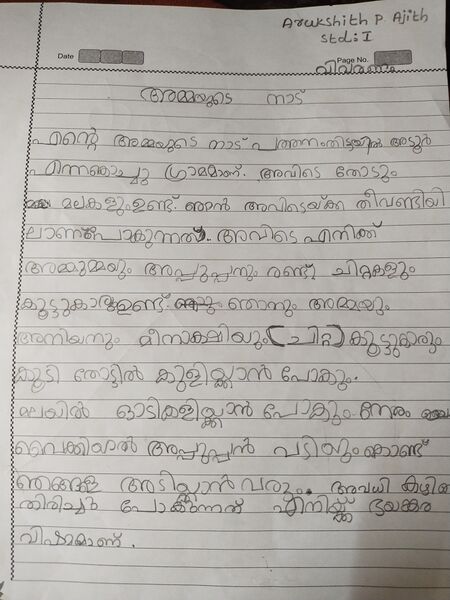 Arukshith P. Ajith
Std: I
Date
Page No.
വിവരണം
അമ്മയുടെ നാട്
എന്റെ അമ്മയുടെ നാട് പത്തനംതിട്ടയിൽ അടൂർ
എന്നകൊച്ചു ഗ്രാമമാണ്. അവിടെ തോടും
മലകളുംഉണ്ട്. ഞാൻ അവിടെയ്ക്ക് തീവണ്ടിയി
ലാണ്പോകുന്നത്. അവിടെ എനിക്ക്
അമ്മുമ്മയും അപ്പുപ്പനും രണ്ട് ചിറ്റകളും
കൂട്ടുകാരുംഉണ്ട് ഞാനും അമ്മയും
അനിയനും മീനാക്ഷിയും (ചിറ്റ) കൂട്ടുകാരും
കൂടി തോട്ടിൽ കുളിയ്ക്കാൻ പോകും.
മലയിൽ ഓടികളിയ്ക്കാൻ പോകും. നേരം
വൈകിയാൽ അപ്പുപ്പൻ വടിയുംകൊണ്ട്
ഞങ്ങളെ അടിയ്ക്കാൻ വരും. അവധി കഴിഞ്ഞ
തിരിച്ചു പോകുന്നത് എനിയ്ക്ക് ഭയങ്കര
വിഷമമാണ്.